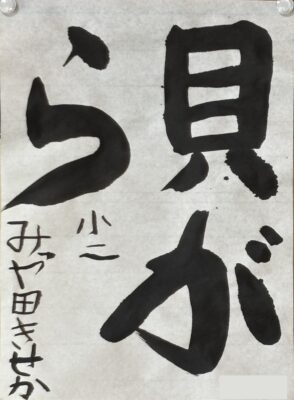 貝が
ら
小二
みや田きせか